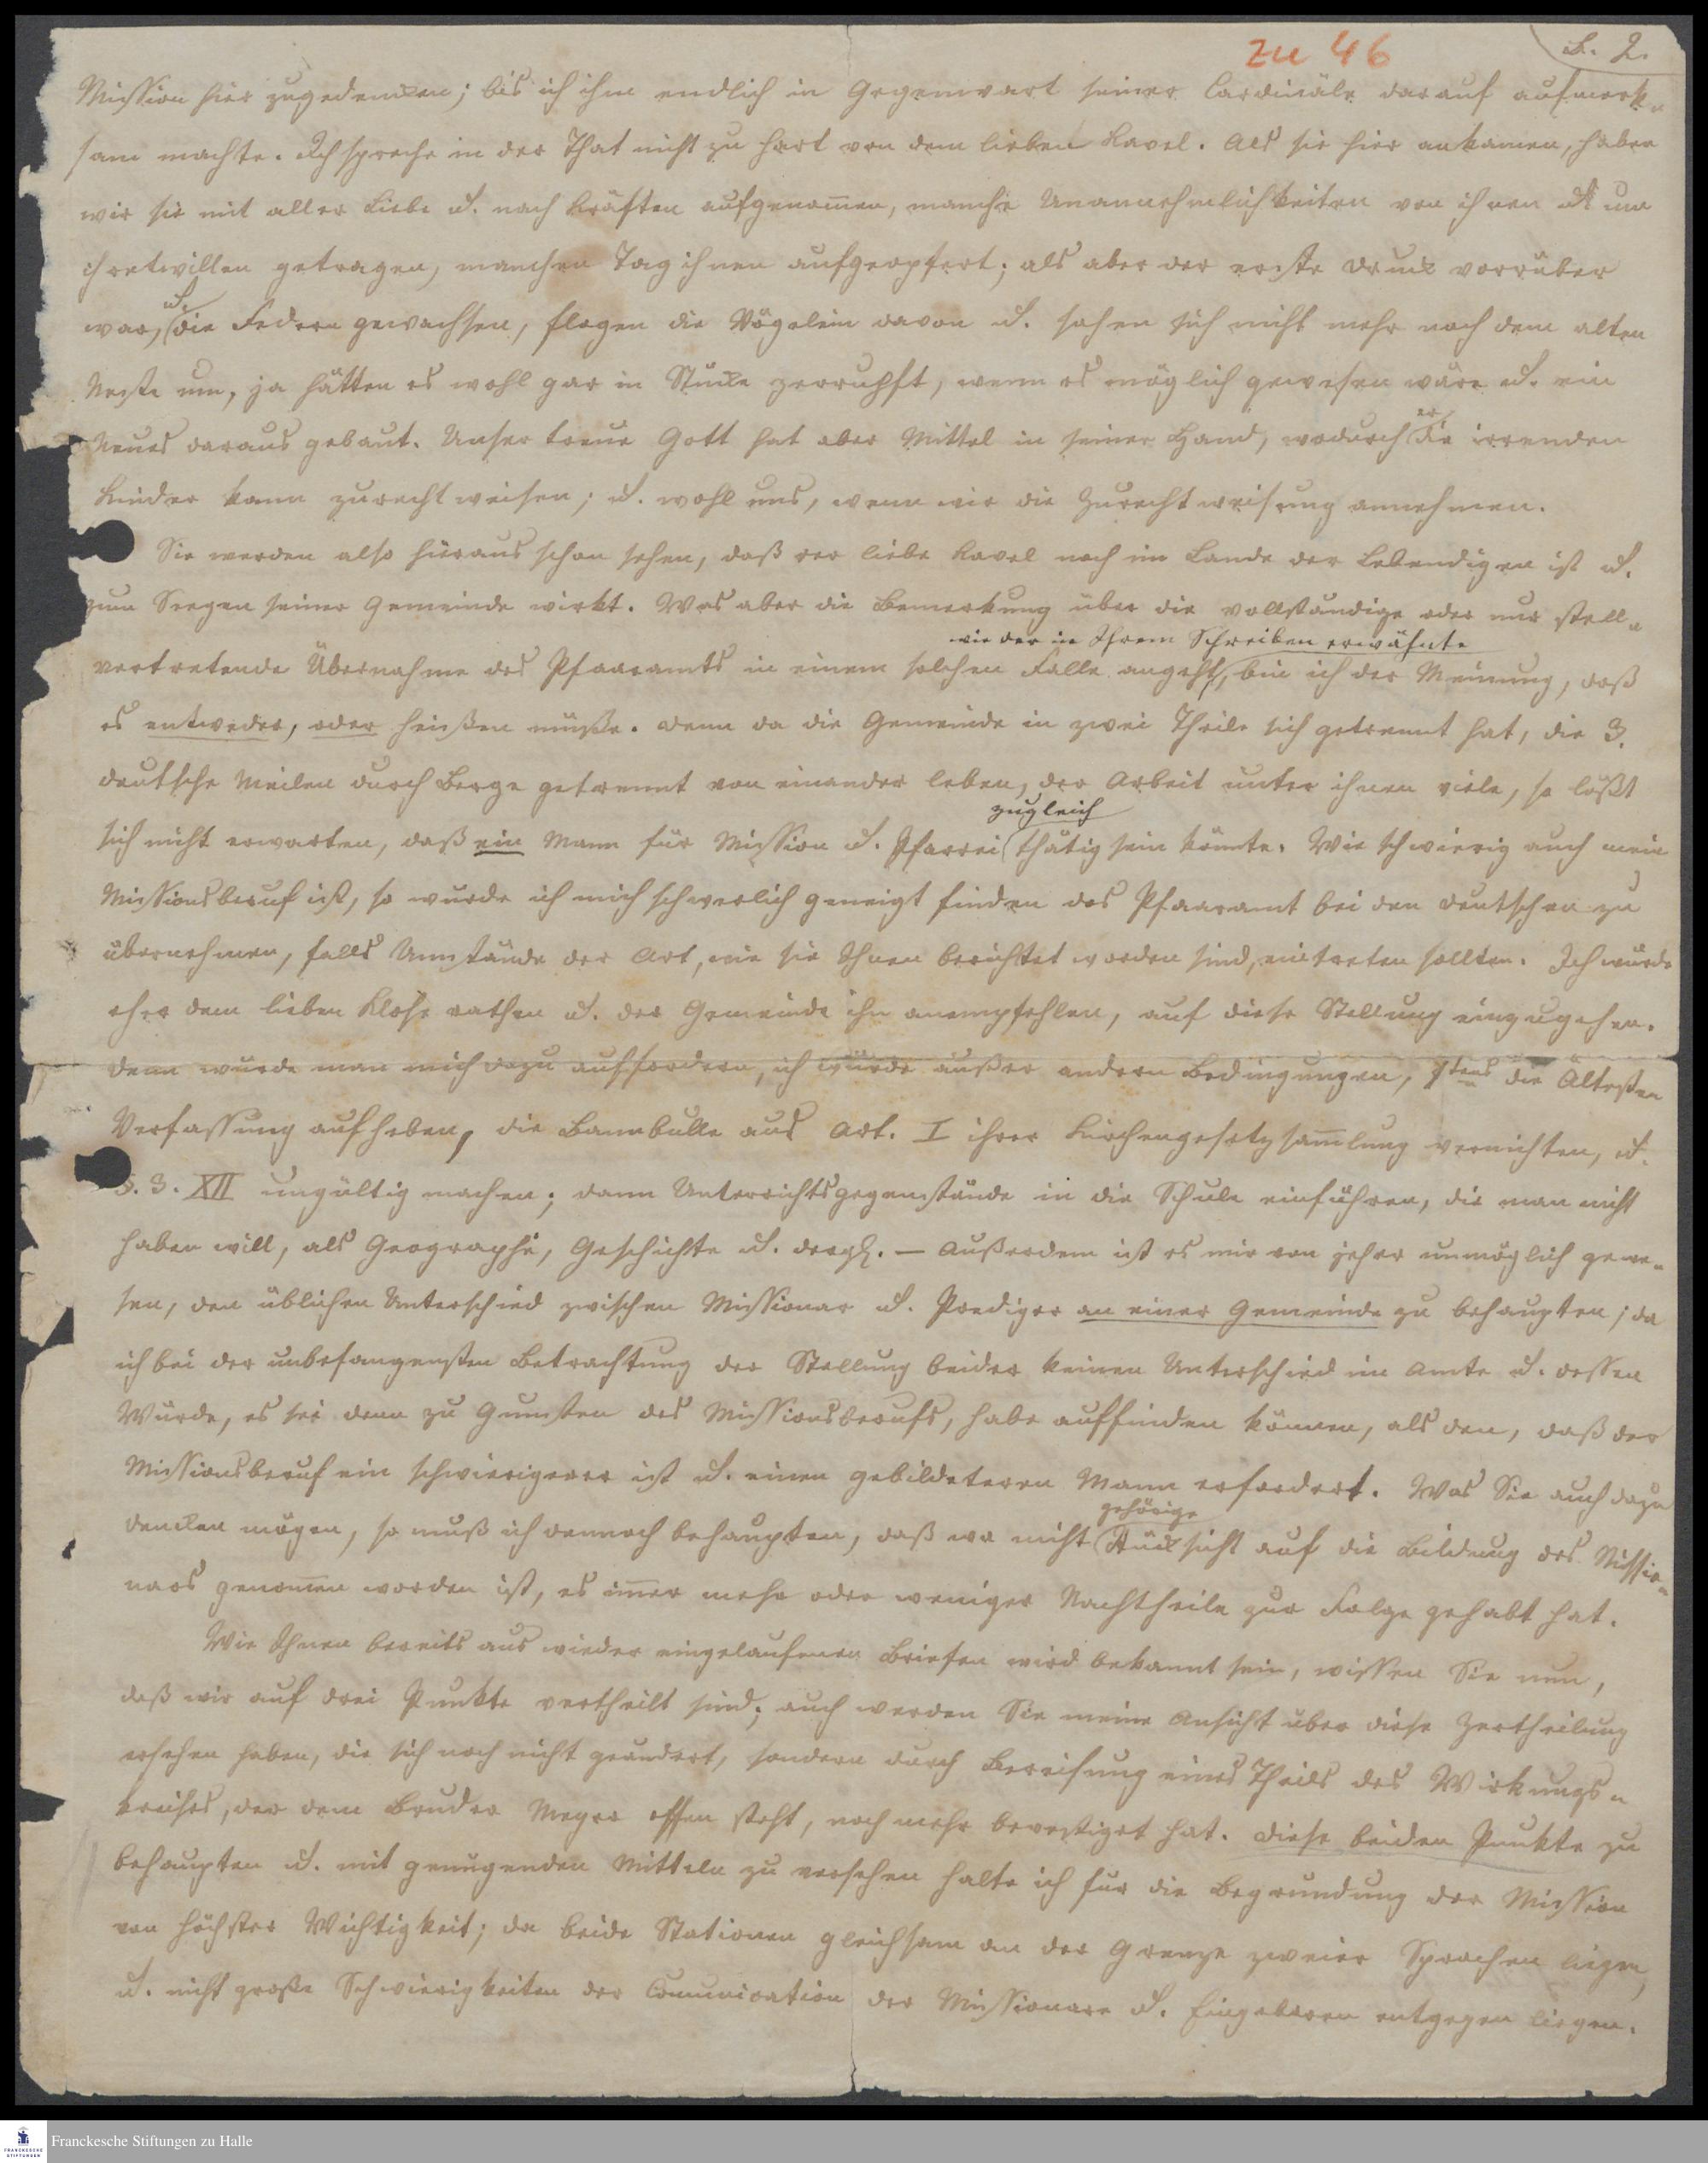 zu 46
B. 2.
Mission hier zugedencken; bis ich ihn endlich in Gegenwart seiner Cardinäle darauf aufmerk-
sam machte. Ich spreche in der That nicht zu hart von dem lieben Kavel. Als sie hier ankamen, haben
wir sie mit aller Liebe u. nach Kräften aufgenom̄en, manche Unannehmlichkeiten von ihnen u. um
ihretwillen getragen, manchen Tag ihnen aufgeopfert; als aber der erste Druck vorrüber
war, u. die Federn gewachsen, flogen die Vögelein davon u. sahen sich nicht mehr nach dem alten
Neste um, ja hätten es wohl gar in Stücke zerrupft, wenn es möglich gewesen wäre u. ein
Neues daraus gebaut. Unser treue Gott hat aber Mittel in seiner Hand, wodurch er die irrenden
Kinder kann zurecht weisen; u. wohl uns, wenn wir die Zurechtweisung annehmen.
Sie werden also hieraus schon sehen, daß der liebe Kavel noch im Lande der Lebendigen ist u.
zum Seegen seiner Gemeinde wirkt. Was aber die Bemerkung über die vollständige oder nur stell-
wie der in Ihrem Schreiben erwähnte
vertretende Übernahme des Pfarramts in einem solchen Falle angeht, bin ich der Meinung, daß
es entweder, oder heißen müße. Denn da die Gemeinde in zwei Theile sich getrennt hat, die 3.
deutsche Meilen durch Berge getrennt von einander leben, der Arbeit unter ihnen viele, so läßt
zugleich
sich nicht erwarten, daß ein Mann für Mission u. Pfarrei thätig sein könnte. Wie schwierig auch mein
Missionsberuf ist, so wurde ich mich schwerlich geneigt finden das Pfarramt bei den Deutschen zu
übernehmen, falls Umstände der Art, wie sie Ihnen berichtet worden sind, eintreten sollten. Ich würde
eher dem lieben Klose rathen u. der Gemeinde ihn anempfehlen, auf diese Stellung einzugehen.
Denn wurde man mich dazu auffordern, ich würde außer andern Bedingungen, 1tens die Ältesten
Verfassung aufheben, die Bannbulle aus Art. I ihrer Kirchengesetzsam̄lung vernichten, u.
§. 3. XII ungültig machen; dann Unterrichtsgegenstände in die Schule einführen, die man nicht
haben will, als Geographi, Geschichte u. dergl. – Außerdem ist es mir von jeher unmöglich gewe-
sen, den üblichen Unterschied zwischen Missionar u. Prediger an einer Gemeinde zu behaupten; da
ich bei der unbefangensten Betrachtung der Stellung beider keinen Unterschied im Amte u. dessen
Würde, es sei denn zu Gunsten des Missionsberufs, habe auffinden können, als den, daß der
Missionsberuf ein schwierigerer ist u. einen gebildeteren Mann erfordert. Was Sie auch dazu
gehörige
dencken mögen, so muß ich dennoch behaupten, daß wo nicht Rücksicht auf die Bildung des Missio-
nars genom̄en worden ist, es im̄er mehr oder weniger Nachtheile zur Folge gehabt hat.
Wie Ihnen bereits aus wieder eingelaufenen Briefen wird bekannt sein, wissen Sie nun,
daß wir auf drei Punkte vertheilt sind; auch werden Sie meine Ansicht über diese Zertheilung
ersehen haben, die sich noch nicht geändert, sondern durch Bereisung eines Theils des Wirkungs-
kreises, der dem Bruder Meyer offen steht, noch mehr bevestiget hat. Diese beiden Punkte zu
behaupten u. mit genugenden Mitteln zu versehen halte ich für die Begründung der Mission
von höchster Wichtigkeit; da beide Stationen gleichsam an der Grenze zweier Sprachen liegen,
u. nicht große Schwierigkeiten der Com̄unication der Missionare u. Eingeboren entgegen liegen.
Franckesche Stiftungen zu Halle
FRANCKESCHE STIFTUNGEN